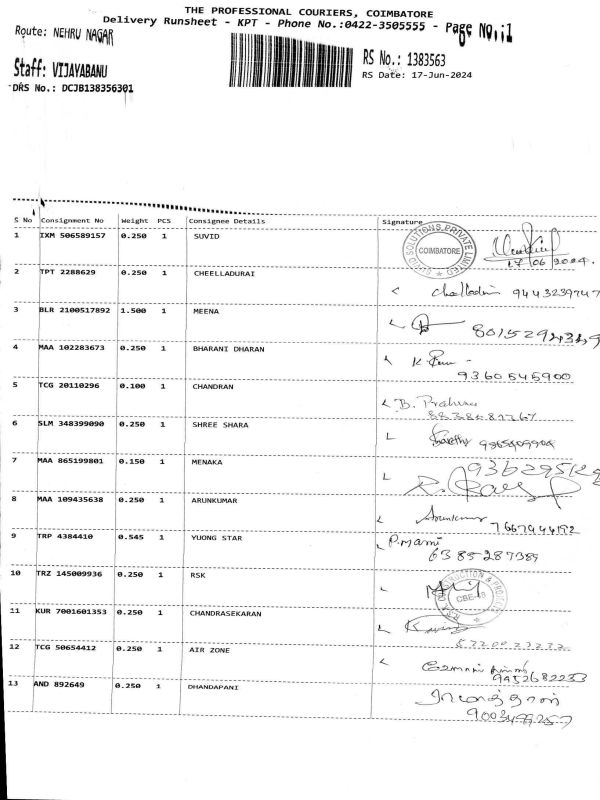 THE PROFESSIONAL COURIERS, COIMBATORE
Delivery Runsheet - KPT - Phone No.:0422-3505555 - Page No.:1
Route: NEHRU NAGAR
RS No.: 1383563
Staff: VIJAYABANU
RS Date: 17-Jun-2024
DRS No.: DCJB138356301
S No Consignment No Weight PCS Consignee Details Signature
1 IXM 506589157 0.250 1 SUVID
SOLUTIONS PRIVATE LIMITED COIMBATORE
17/06/2024.
2 TPT 2288629 0.250 1 CHEELLADURAI
9443239747
3 BLR 2100517892 1.500 1 MEENA
4 MAA 102283673 0.250 1 BHARANI DHARAN
9360545900
5 TCG 20110296 0.100 1 CHANDRAN
B.
6 SLM 348399090 0.250 1 SHREE SHARA
7 MAA 865199801 0.150 1 MENAKA
8 MAA 109435638 0.250 1 ARUNKUMAR
Arunkumar 7667944192
9 TRP 4384410 0.545 1 YUONG STAR
P.mani
6385287389
10 TRZ 145009936 0.250 1 RSK
CBE-18
11 KUR 7001601353 0.250 1 CHANDRASEKARAN
12 TCG 50654412 0.250 1 AIR ZONE
9452682233
13 AND 892649 0.250 1 DHANDAPANI